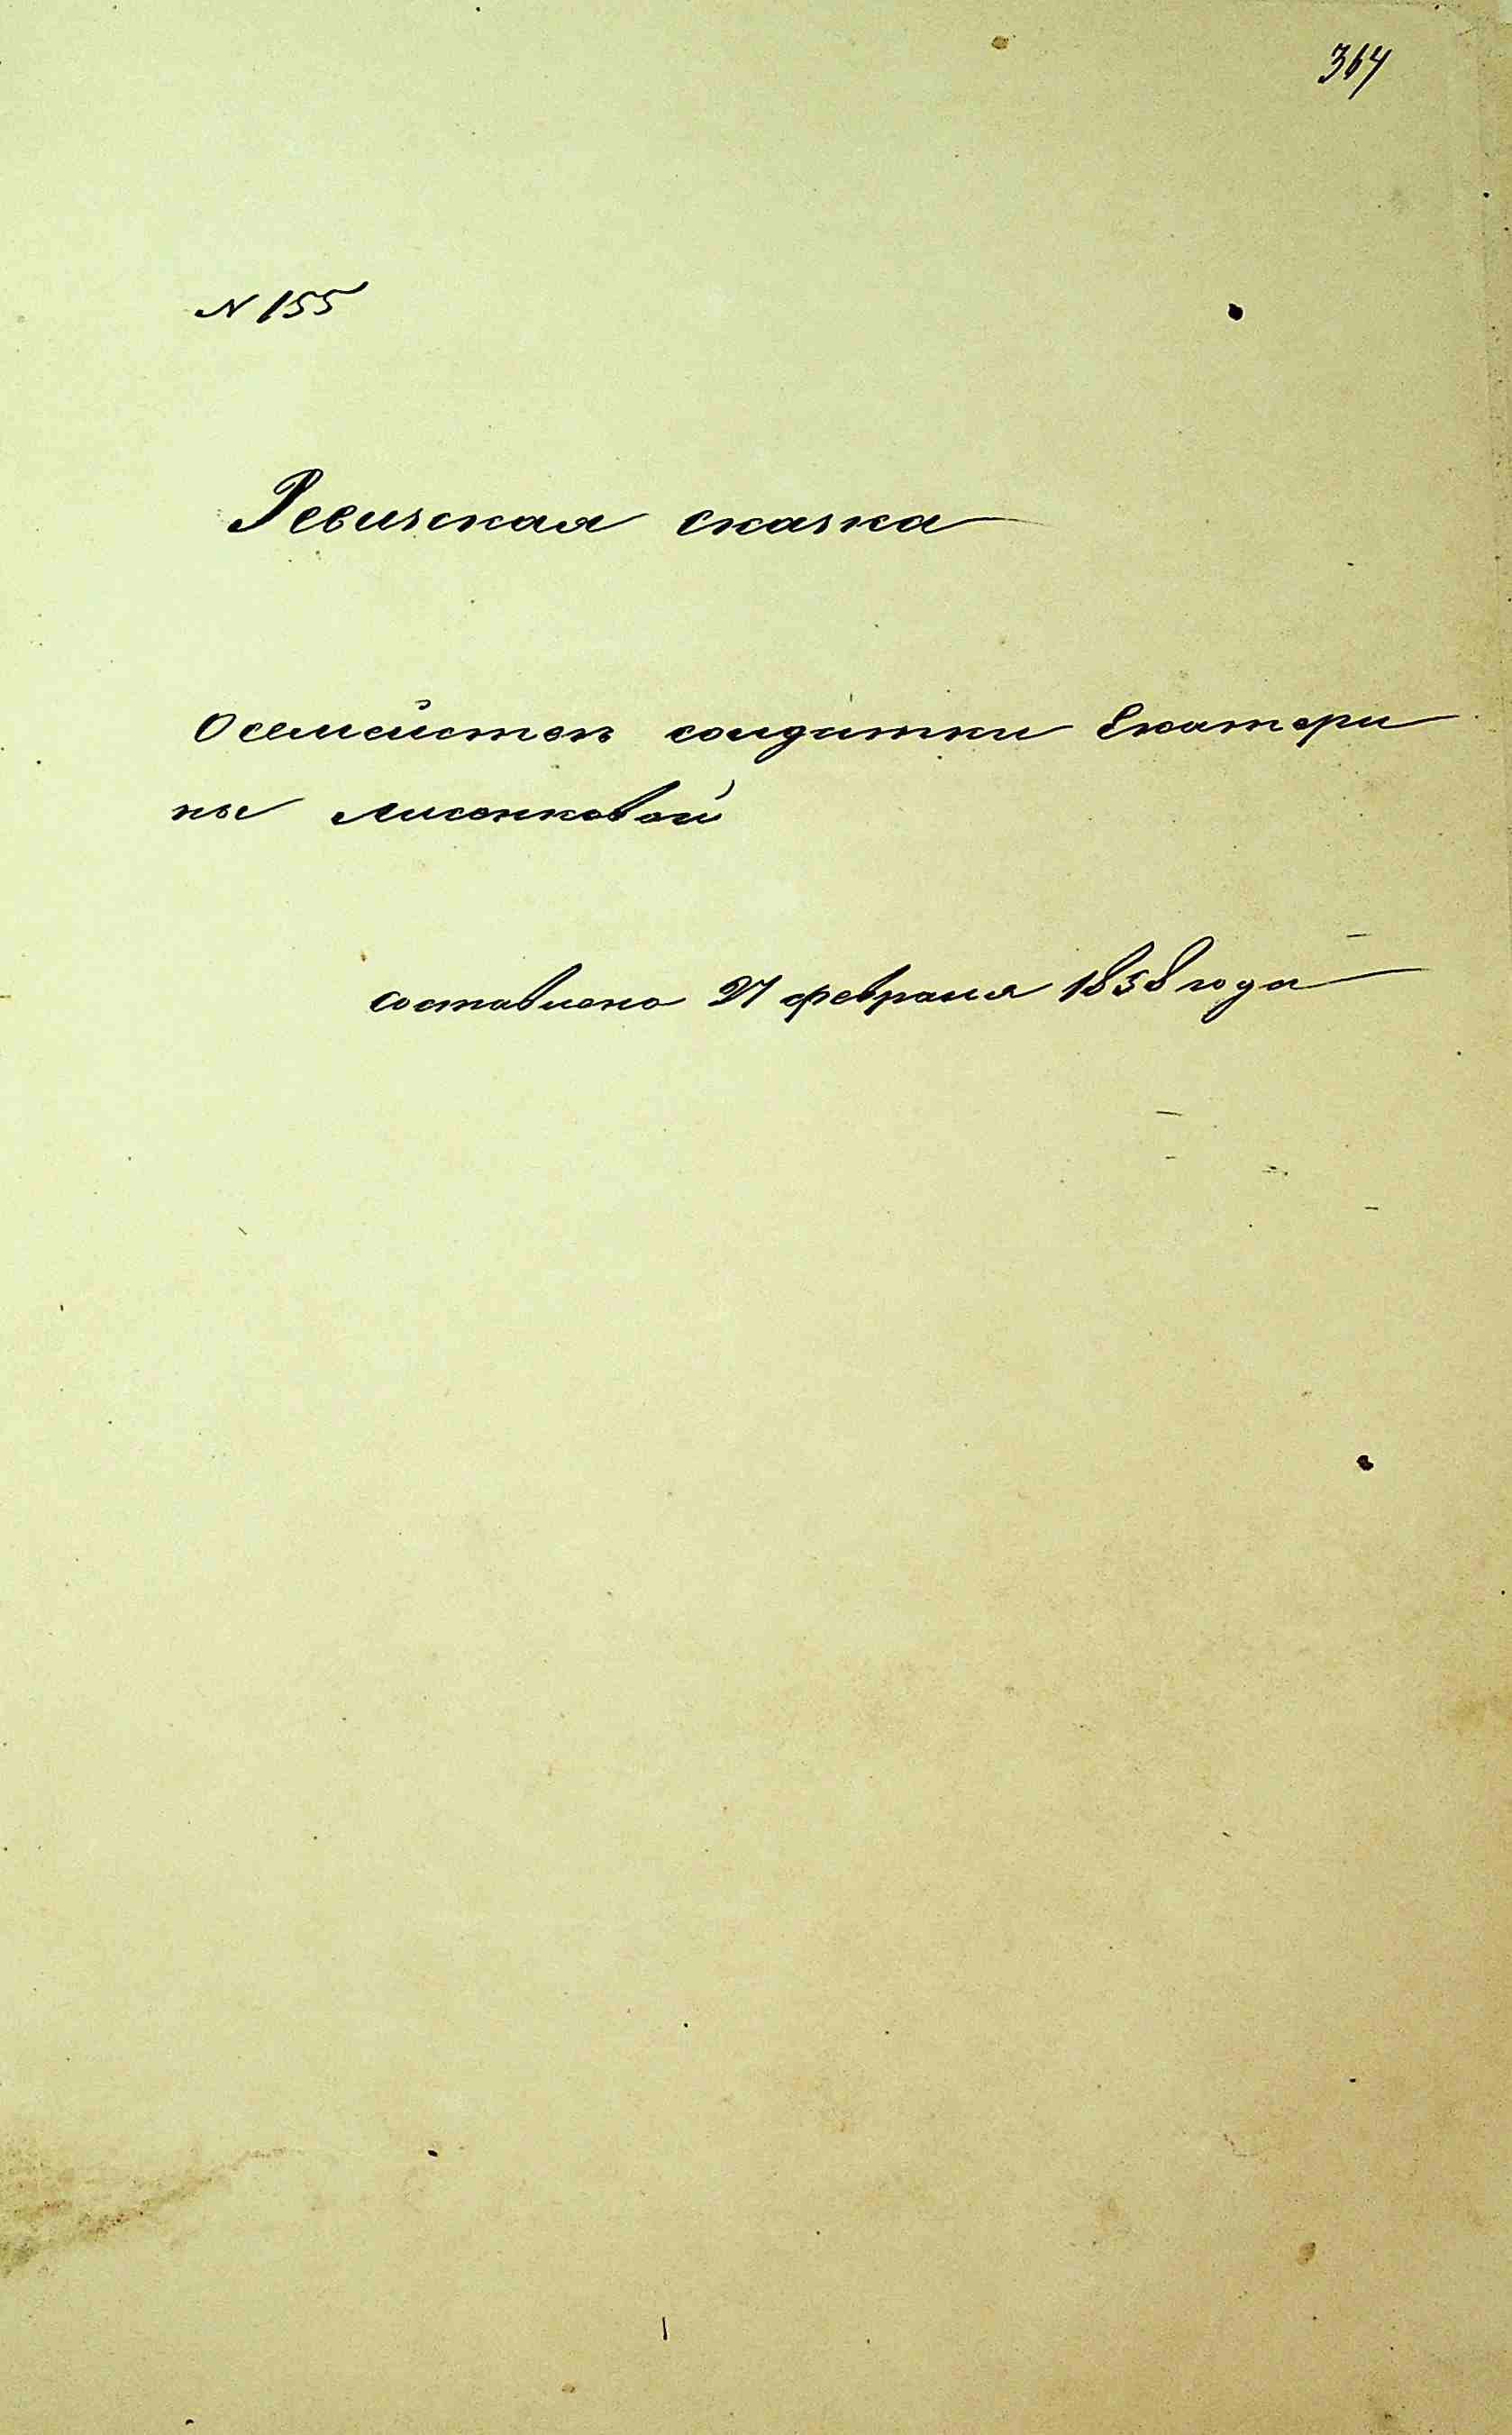 364
N 155
Ревизская сказка
О семействѣ солдатки Екатери
ны Лисенковой
составлена 27 февраля 1858 года